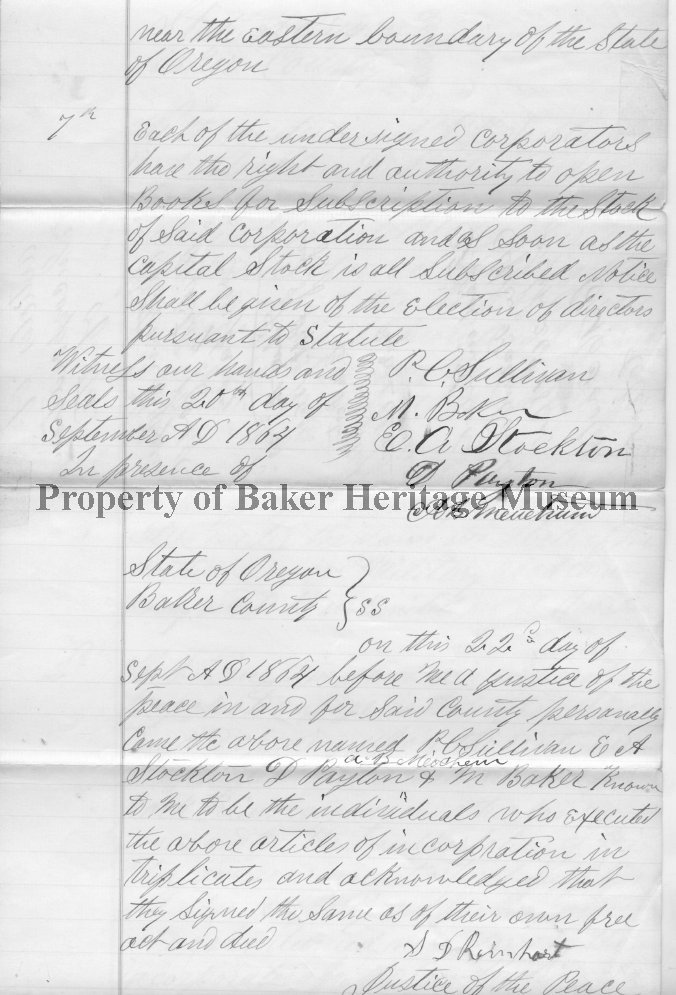 near the Eastern boundary of the State
of Oregon
7th
Each of the undersigned Corporators
have the right and authority to open
Books for Subscription to the Stock
of Said Corporation and as soon as the
Capital Stock is all Subscribed Notice
Shall be given of the Election of directors
pursuant to Statute
Witness our hands and
Seals this 20th day of
September AD 1864
In presence of
P. C. Sullivan
M. Baker
E. A Stockton
D Payton
Property of Baker Heritage Museum
State of Oregon
Baker County } SS
on this 22d day of
Sept AD 1864 before me a Justice of the
peace in and for Said County personaly
Came the above named P C Sullivan E A
A B Meacham
Stockton D Payton & M Baker Known
to me to be the individuals who executed
the above articles of incorpration in
triplicates and acknowledged that
they Signed the Same as of their own free
act and deed
S D Rernhart
Justice of the Peace